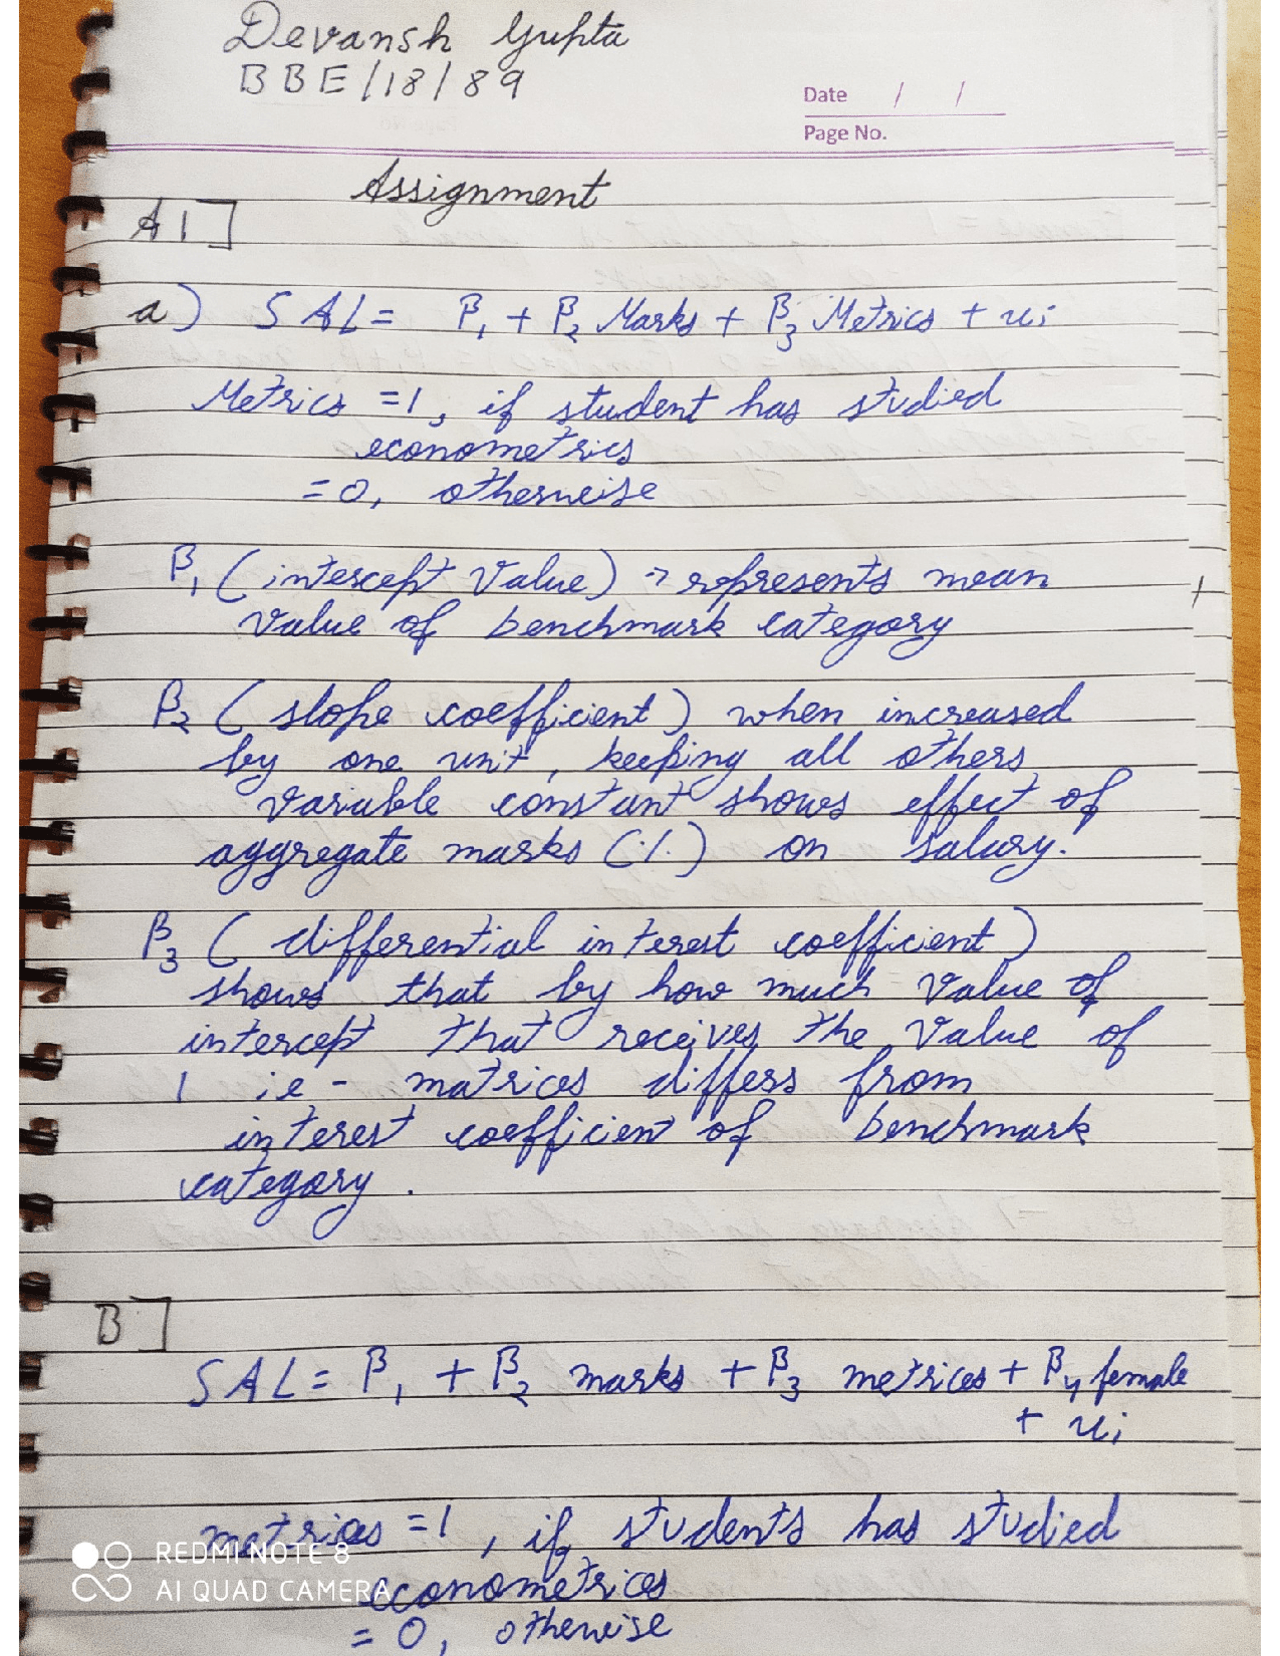 Devansh Gupta
BBE/18/89
Date / /
Page No.
Assignment
A1]
a) SAL = β₁ + β₂ Marks + β₃ Metrics + uᵢ
Metrics = 1, if student has studied
econometrics
= 0, otherwise
β₁ (intercept value) → represents mean
value of benchmark category
β₂ (slope coefficient) when increased
by one unit, keeping all others
variable constant shows effect of
aggregate marks (%) on salary.
β₃ (differential interest coefficient)
shows that by how much value of
intercept that receives the value of
1 i.e - matrices differs from
interest coefficient of benchmark
category.
B]
SAL = β₁ + β₂ marks + β₃ metrices + β₄ female
+ uᵢ
metrices = 1, if students has studied
econometrices
= 0, otherwise
REDMI NOTE 8
AI QUAD CAMERA